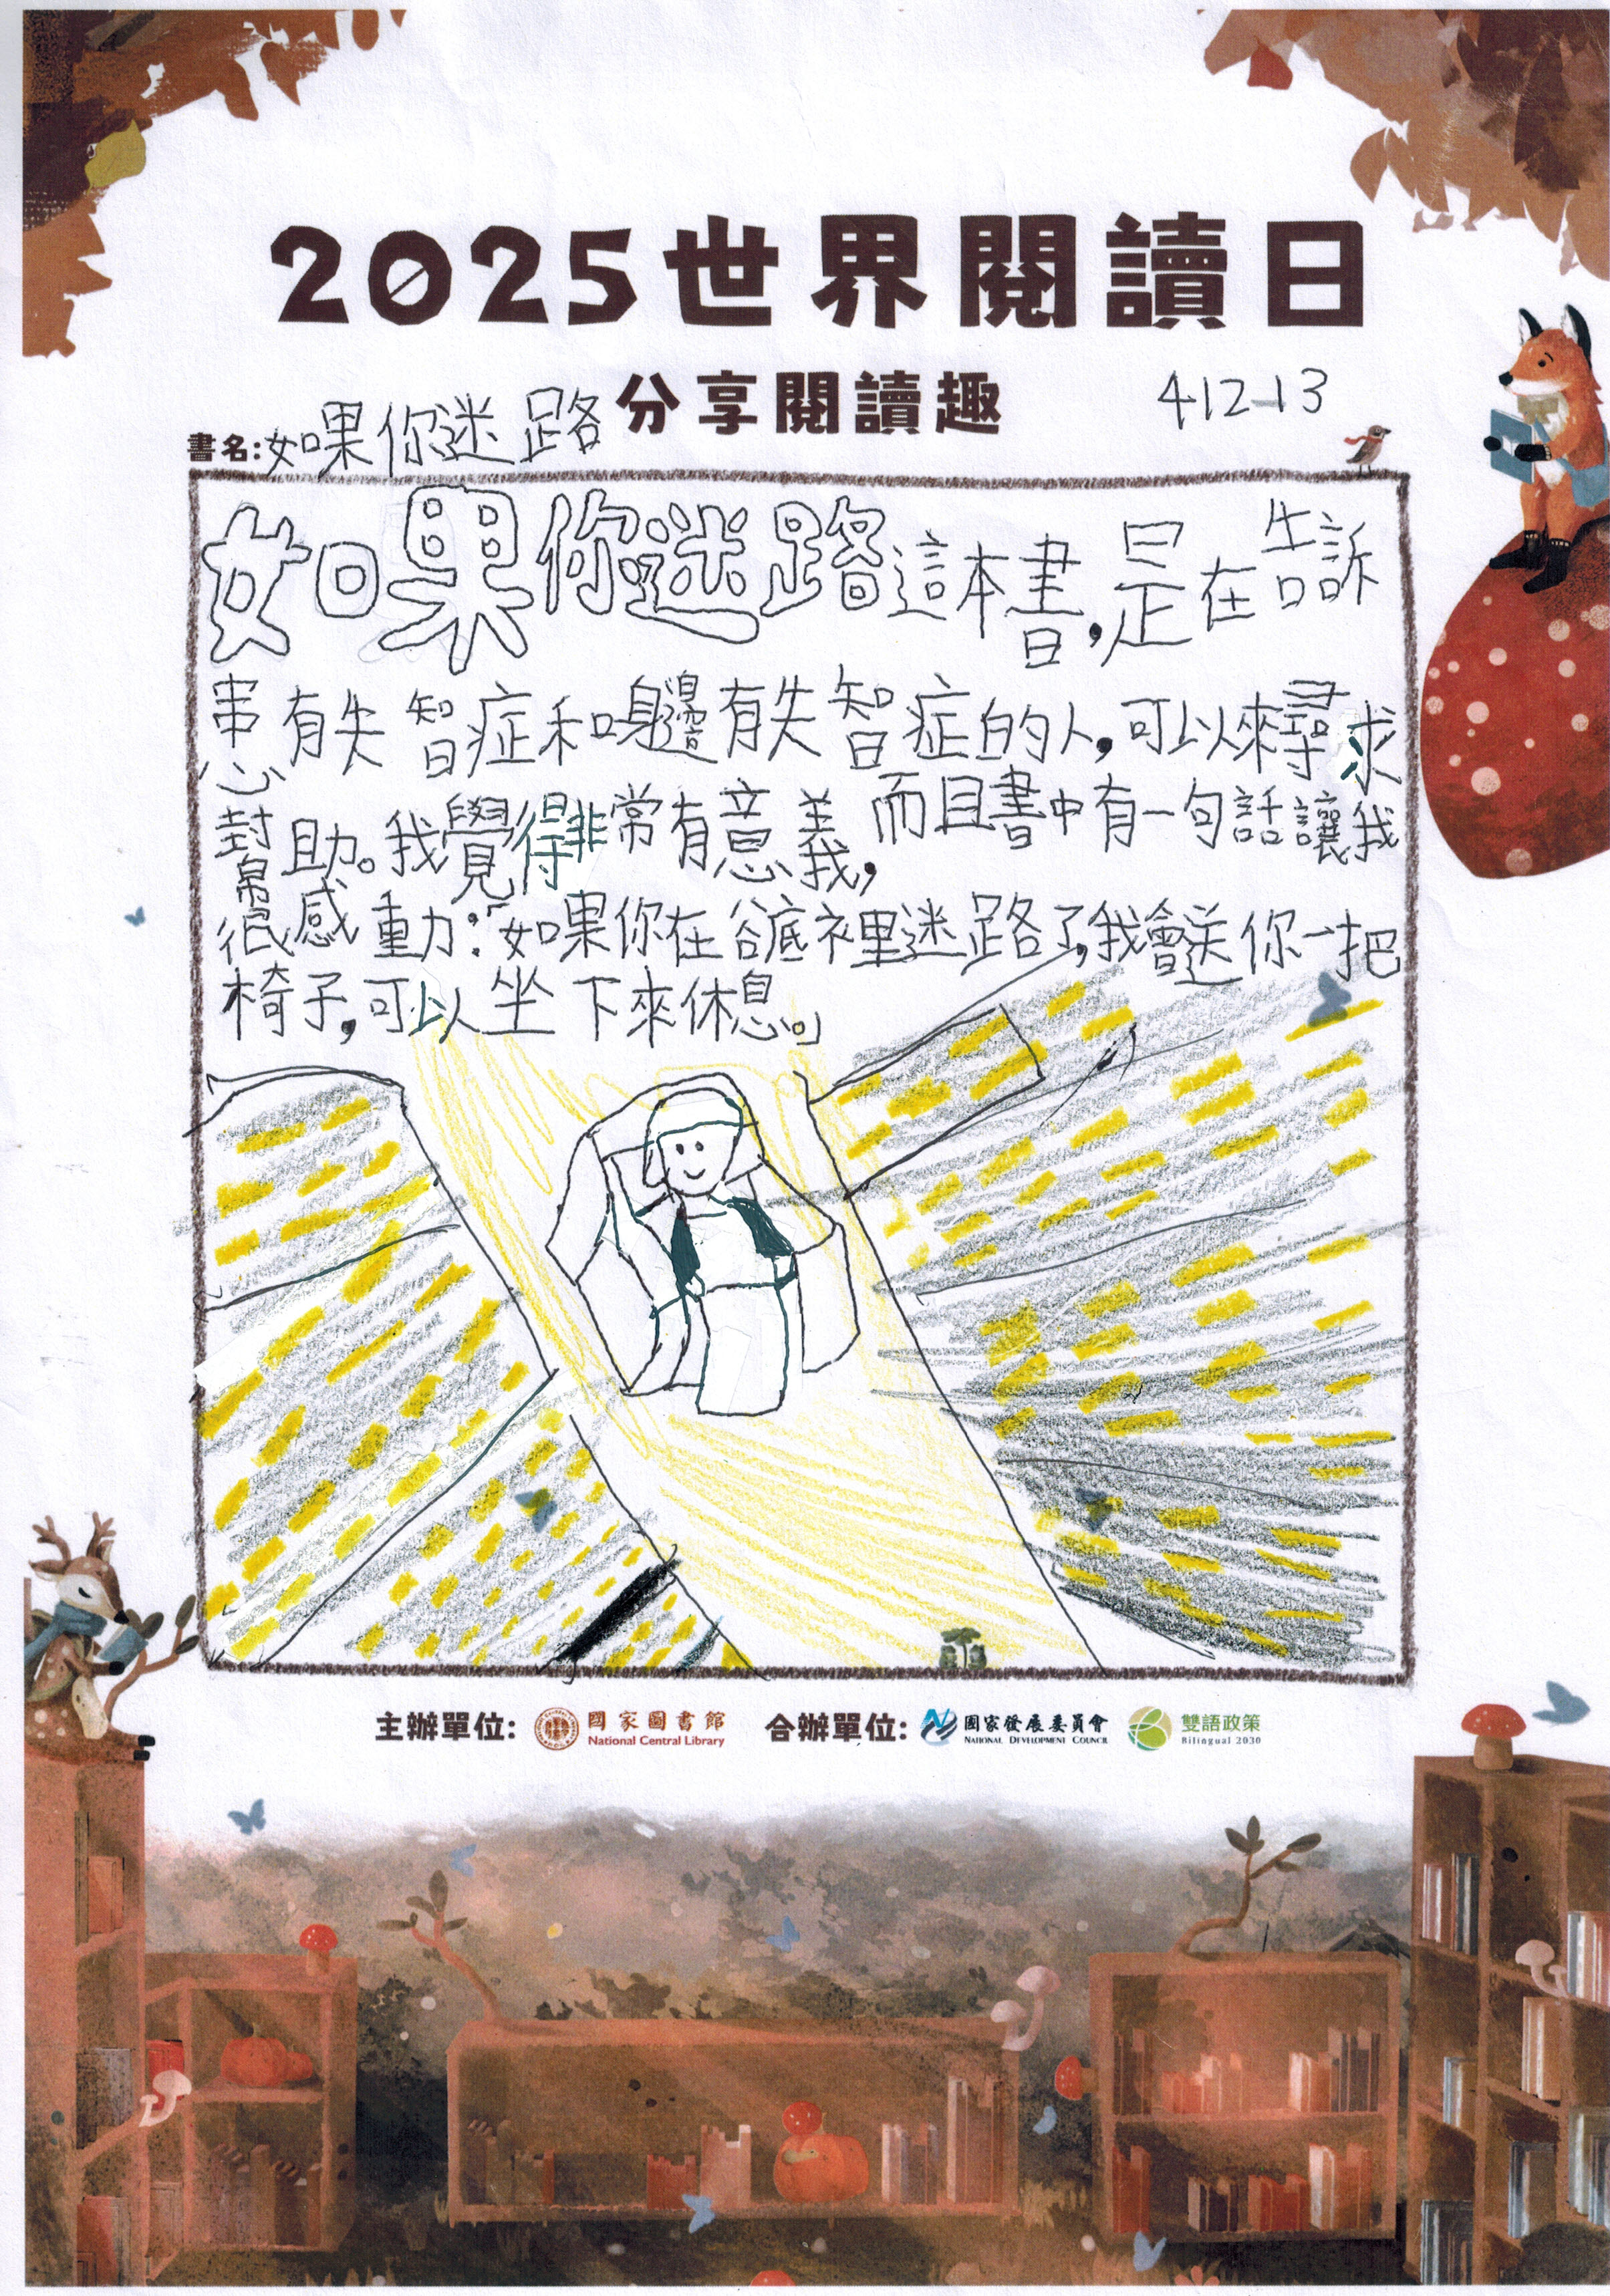 2025世界閱讀日
分享閱讀趣
41213
書名:如果你迷路
如果你迷路這本書,是在告訴
患有失智症和身邊有失智症的人,可以來尋求
幫助。我覺得非常有意義,而且書中有一句話讓我
很感動:「如果你在谷底裡迷路了,我會送你一把
椅子,可以坐下來休息。」
主辦單位: 國家圖書館 National Central Library 合辦單位: 國家發展委員會 National Development Council 雙語政策 Bilingual 2030